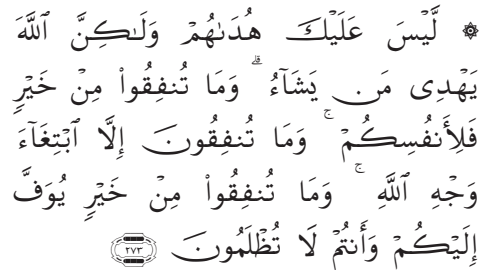 ۞ لَّيْسَ عَلَيْكَ هُدَىٰهُمْ وَلَـٰكِنَّ ٱللَّهَ
يَهْدِى مَن يَشَآءُ ۗ وَمَا تُنفِقُوا۟ مِنْ خَيْرٍ
فَلِأَنفُسِكُمْ ۚ وَمَا تُنفِقُونَ إِلَّا ٱبْتِغَآءَ
وَجْهِ ٱللَّهِ ۚ وَمَا تُنفِقُوا۟ مِنْ خَيْرٍ يُوَفَّ
إِلَيْكُمْ وَأَنتُمْ لَا تُظْلَمُونَ ٢٧٣